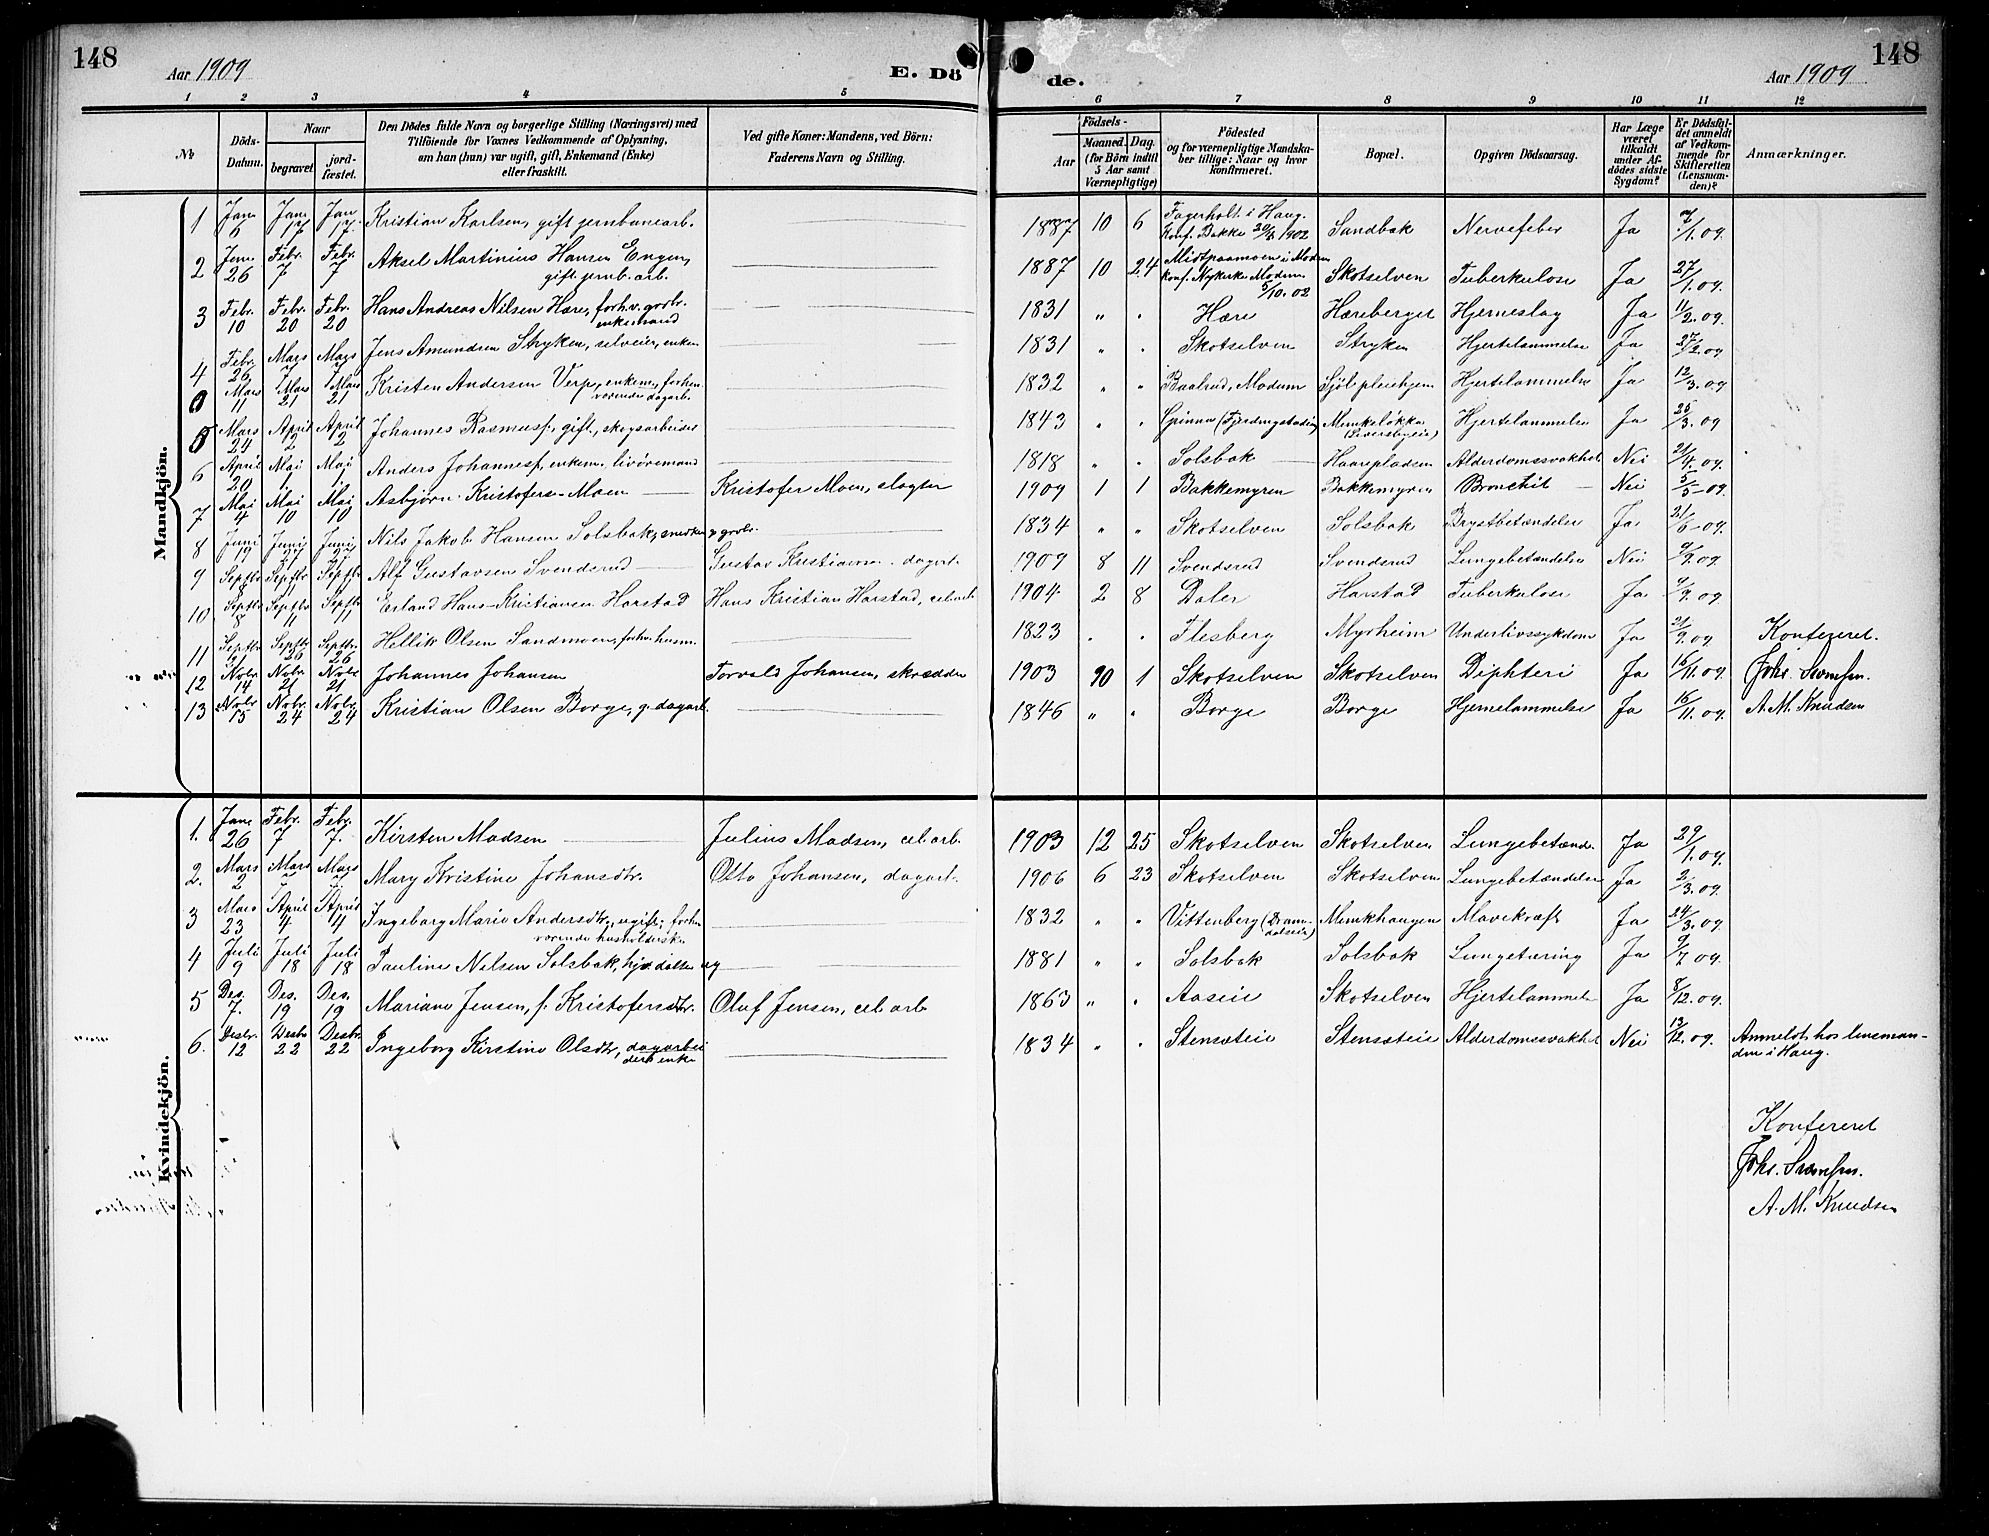 148
Aar 1909
E. Dö
de.
Aar 1909
148
1 2 3 4 5 6 7 8 9 10 11 12
No
Döds-Datum.
Naar
begravet
jord-fæstet.
Den Dödes fulde Navn og borgerlige Stilling (Næringsvei) med
Tilföiende for Voxnes Vedkommende af Oplysning,
om han (hun) var ugift, gift, Enkemand (Enke)
eller fraskilt.
Ved gifte Koner: Mandens, ved Börn:
Faderens Navn og Stilling.
Födsels-
Aar
Maaned. Dag.
(for Börn indtil
5 Aar samt
Værnepligtige)
Födested
og for værnepligtige Mandska-
ber tillige: Naar og hvor
konfirmeret.
Bopæl.
Opgiven Dödsaarsag.
Har Læge
været
tilkaldt
under Af-
dödes sidste
Sygdom?
Er Dödsfal-
det anmeldt
af Vedkom-
mende for
Skifteretten
(Lensman-
den)?
Anmærkninger.
Mandkjön.
1 Jan. 6 Jan. 17 Jan. 17. Kristian Karlsen, gift jernbanearb. 1887 10 6 Fagerholt i Haug. Konf. Bakke 1902 Sandbak Nervefeber Ja 7/1.09.
2 Jan. 26 Febr. 7 Febr. 7 Aksel Martinius Hansen Engen, gift jernb. arb. 1887 10 24 Midtpaamoen i Modum Konf. Nykirke Modum 5/10.02 Skotselven Tuberkulose Ja 27/1.09.
3 Febr. 10 Febr. 20 Febr. 20 Hans Andreas Nilsen Hære, forhv. gaardbr. enkemand 1831 " " Hære Hæreberget Hjerneslag Ja 11/2.09.
4 Febr. 26 Mars 7 Mars 7 Jens Amundsen Stryken, selveier, enkem 1831 " " Skotselven Stryken Hjertelammelse Ja 27/2.09
Mars 11 Mars 21 Mars 21 Kristen Andersen Verp, enkem., forhen værende dagarb. 1832 " " Baalsrud, Modum Sjöl pleiehjem Hjertelammelse Ja 12/3.09
5 Mars 24 April 2 April 2 Johannes Rasmusf., gift, skogsarbeider 1843 " " Munkeløkka Hjertelammelse Ja 25/3.09
6 April 20 Mai 1 Mai 1 Anders Johannesf, enkem., livöremand 1818 " " Solsbak Haarepladsen Alderdomssvakhet Nei 21/4.09.
7 Mai 4 Mai 10 Mai 10 Asbjørn Kristofers. Moen Kristofer Moen, slagter 1909 1 1 Bakkemyren Bakkemyren Bronchit Nei 5/5-09.
8 Juni 19 Juni 27 Juni 27 Nils Jakob Hansen Solsbak, snedker & gaardbr. 1834 " " Skotselven Solsbak Brystbetændelse Ja 21/6-09
9 Septbr. Septbr. Septbr. Alf Gustavsen Svendsrud Gustav Kristiansen dagarb. 1909 8 11 Svendsrud Svendsrud Lungebetændelse Nei 9/9.09.
10 Septbr. 8 Septbr. 11 Septbr. 11 Erland Hans-Kristiansen Harstad Hans Kristian Harstad, cel.arb. 1904. 2 8 Daler Harstad Tuberkulose Ja 9/9.09
11 Septbr. 21 Septbr. 26 Septbr. 26 Hellik Olsen Sandmoen, forhv. husm. 1823 " " Flesberg Myrheim Underlivssykdom Ja 21/9.09 Konfereret.
12 Nobr. 14 Nobr. 21 Nobr. 21 Johannes Johansen Torvald Johansen, skrædder 1903 1 Skotselven Skotselven Diphteri Ja 16/11.09.
13 Nobr. 15 Nobr. 24 Nobr. 24 Kristian Olsen Borge, g. dagarb. 1846 " " Borge Borge Hjernelammelse Ja 16/11.09. A. M. Knudsen
Kvindekjön.
1. Jan. 26 Febr. 7 Febr. 7. Kirsten Madsen Julius Madsen, cel.arb. 1903 12 25 Skotselven Skotselven Lungebetænd. Ja 29/1.09.
2. Mars 2 Mars 7 Mars 7 Mary Kristine Johansdtr. Otto Johansen, dagarb. 1906 6 23 Skotselven Skotselven Lungebetændelse Ja 2/3.09.
3 Mars 23 April 4 April 4 Ingeborg Marie Andersdtr, ugift, forhen værende husholderske 1832 " " Vittenberg Munkhaugen Mavekræft Ja 24/3.09.
4 Juli 9 Juli 18 Juli 18 Pauline Nilsen Solsbak, hjv. datter ug 1881 " " Solsbak Solsbak Lungetæring Ja 9/7 09.
5 Des. 7. Des. 19 Des. 19 Mariane Jensen, f. Kristofersdtr. Oluf Jensen, cel.arb 1863 " " Aaseie Skotselven Hjertelammelse Ja 8/12.09.
6. Desbr. 12 Desbr 22 Desbr. 22 Ingeborg Kirstine Olsdtr, dagarbeiders enke 1834 " " Stensæteie Stensæteie Alderdomssvakhet Nei 13/12.09. Anmeldt hos lensman-
den i Haug.
Konfereret
A. M. Knudsen